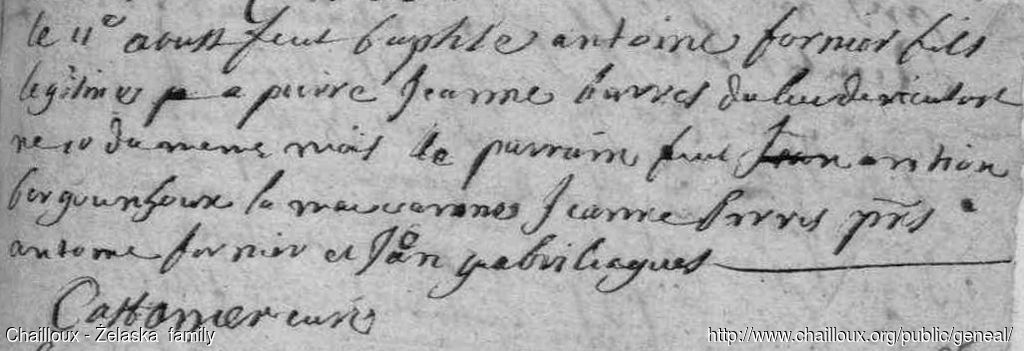 le 11e aoust feut baptise antoine fornier fils
legitimes a pierre Jeanne barres du lieu de
ne 10 du meme mois le parrain feut antoine
la Jeanne barres prs
antoine fornier et Jan
Castanier cure
Chailloux - Żelaska family
http://www.chailloux.org/public/geneal/